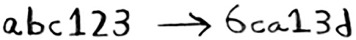 abc123 → 6ca13d